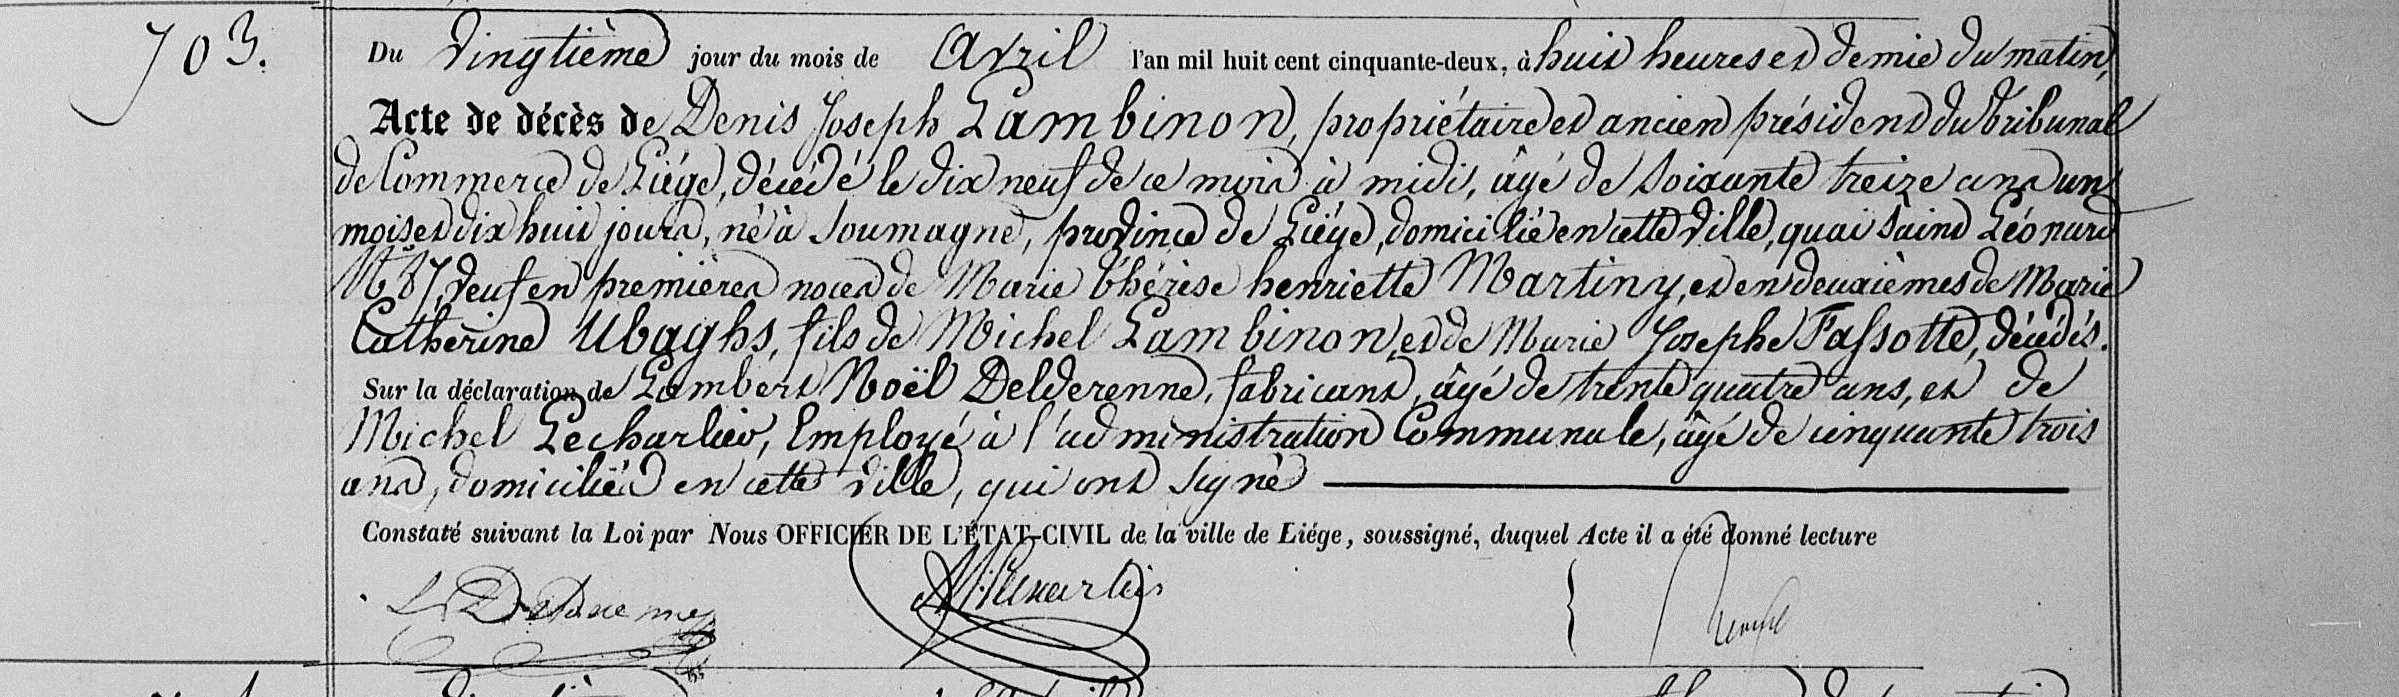 703.
Du Vingtième jour du mois de Avril l'an mil huit cent cinquante-deux, à huit heures et demie du matin,
Acte de décès de Denis Joseph Lambinon, propriétaire et ancien président du tribunal
de Commerce de Liége, décédé le dix neuf de ce mois à midi, âgé de soixante treize ans un
mois et dix huit jours, né à Soumagne, province de Liége, domicilié en cette Ville, quai Saint Léonard
veuf en premières noces de Marie thérèse henriette Martiny, et en deuxièmes de Marie
Catherine Ubaghs, fils de Michel Lambinon, et de Marie Josephe Fassotte, décédés.
Sur la déclaration de Lambert Noël Delderenne, fabricant, âgé de trente quatre ans, et de
Michel Lecharlier, Employé à l'administration Communale, âgé de cinquante trois
ans, domiciliés en cette Ville, qui ont signé
Constaté suivant la Loi par Nous OFFICIER DE L'ÉTAT-CIVIL de la ville de Liége, soussigné, duquel Acte il a été donné lecture